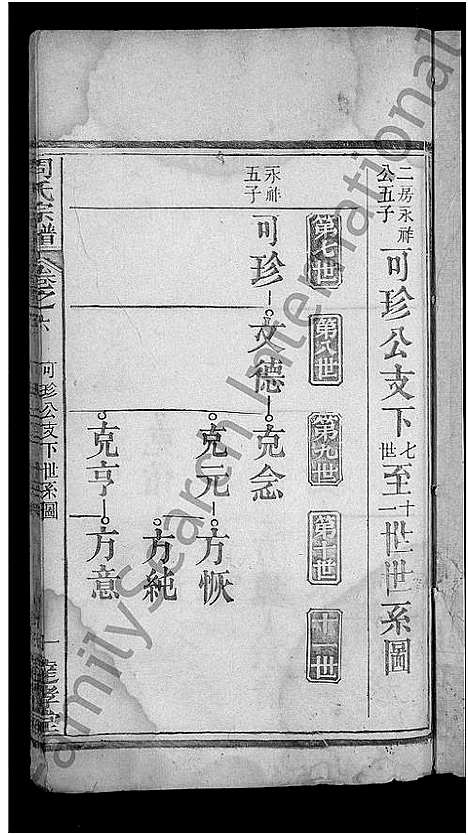 二房永祚公五子可珍公支下七世至十一世世系圖
第七世
第八世
第九世
第十世
十一世
永祚五子
可珍
文德
克念
克元
方恢
方純
克亨
方意
周氏宗譜
卷之六
可珍公支下世系圖
一
FamilySearch International